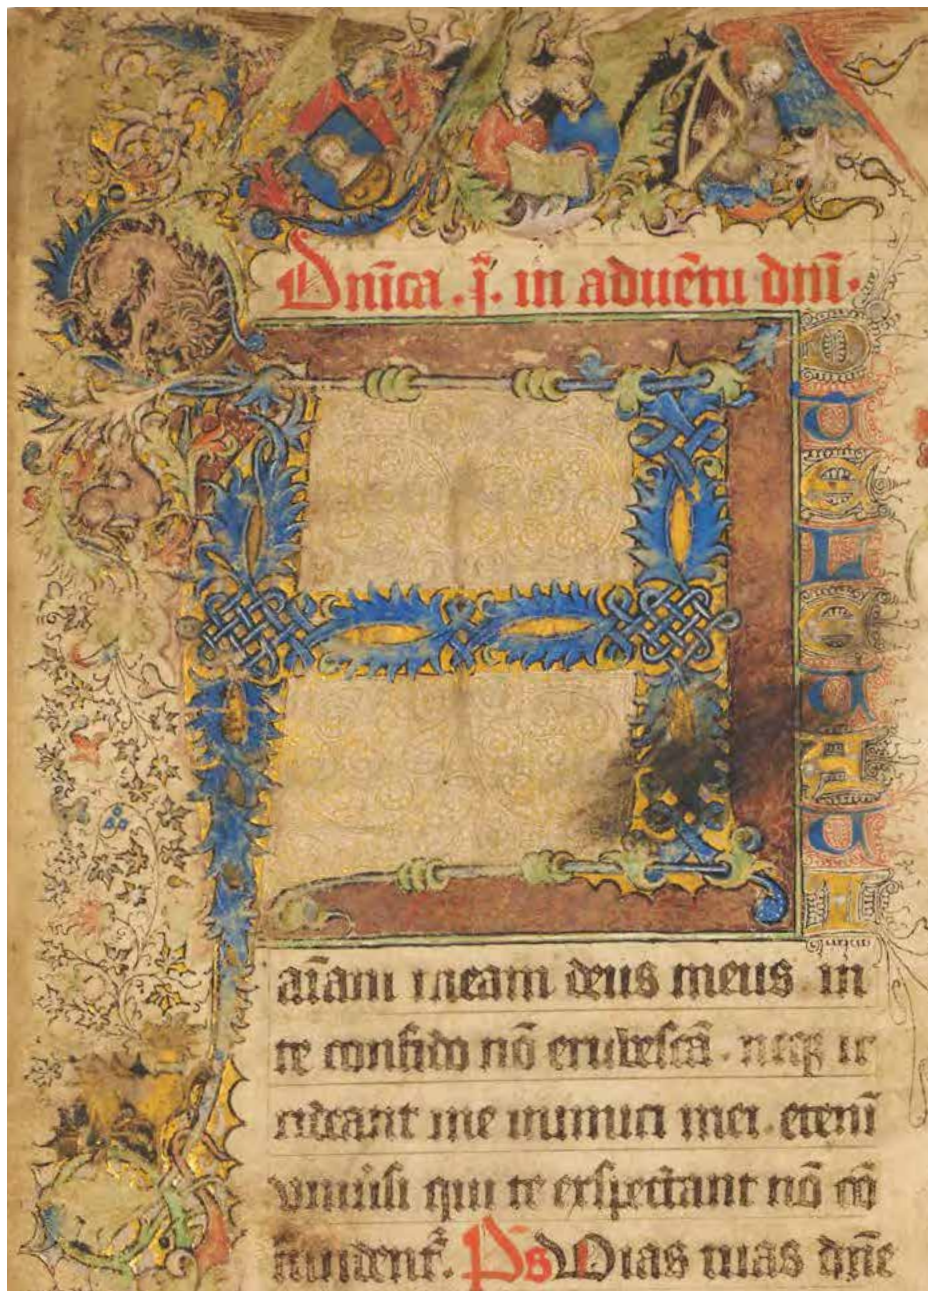 Dn̄ica . i̇ . in aduētu dn̄i .
A
d
t
e
l
e
u
a
u
i
aīam meam deus meus in
te confido nō erubescā . neqꝫ ir
rideant me inimici mei . etenī
vniuersi qui te exspectant nō cō
fundent᷑. Ps Uias tuas dn̄e